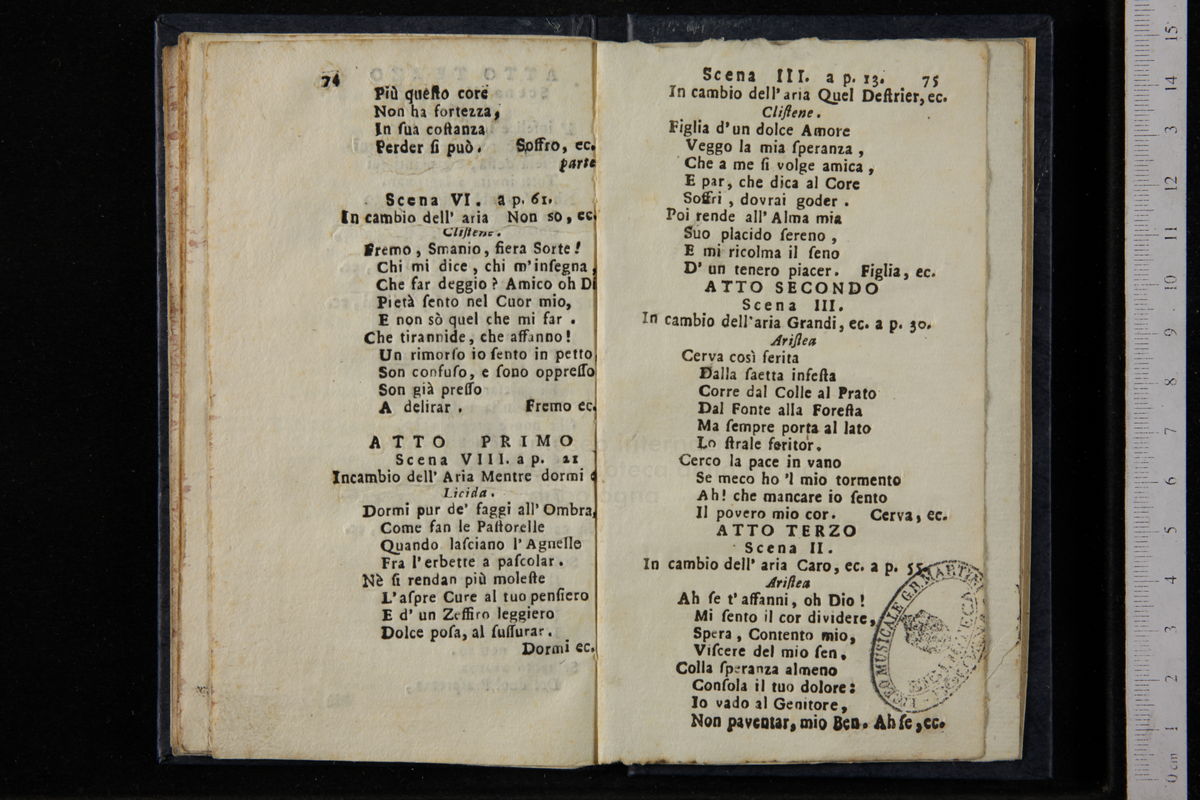 74
Più queſto core
Non ha fortezza,
In ſua coſtanza
Perder ſi può. Soffro, ec.
parte
Scena VI. a p. 61.
In cambio dell' aria Non so, ec.
Cliſtene.
Fremo, Smanio, fiera Sorte!
Chi mi dice, chi m'inſegna,
Che far deggio? Amico oh Di
Pietà ſento nel Cuor mio,
E non sò quel che mi far.
Che tirannide, che affanno!
Un rimorſo io ſento in petto
Son confuſo, e ſono oppreſſo
Son già preſſo
A delirar. Fremo ec.
ATTO PRIMO
Scena VIII. a p. 21
Incambio dell' Aria Mentre dormi
Licida.
Dormi pur de' faggi all' Ombra,
Come fan le Paſtorelle
Quando laſciano l'Agnelle
Fra l'erbette a paſcolar.
Nè ſi rendan più moleſte
L'aſpre Cure al tuo penſiero
E d' un Zeffiro leggiero
Dolce poſa, al ſuſſurar.
Dormi ec.
Scena III. a p. 13. 75
In cambio dell' aria Quel Deſtrier, ec.
Cliſtene.
Figlia d'un dolce Amore
Veggo la mia ſperanza,
Che a me ſi volge amica,
E par, che dica al Core
Soffri, dovrai goder.
Poi rende all' Alma mia
Suo placido ſereno,
E mi ricolma il ſeno
D' un tenero piacer. Figlia, ec.
ATTO SECONDO
Scena III.
In cambio dell'aria Grandi, ec. a p. 30.
Ariſtea
Cerva così ferita
Dalla ſaetta infeſta
Corre dal Colle al Prato
Dal Fonte alla Foreſta
Ma ſempre porta al lato
Lo ſtrale feritor.
Cerco la pace in vano
Se meco ho 'l mio tormento
Ah! che mancare io ſento
Il povero mio cor. Cerva, ec.
ATTO TERZO
Scena II.
In cambio dell' aria Caro, ec. a p. 55.
Ariſtea
Ah ſe t'affanni, oh Dio!
Mi ſento il cor dividere,
Spera, Contento mio,
Viſcere del mio ſen.
Colla ſperanza almeno
Conſola il tuo dolore:
Io vado al Genitore,
Non paventar, mio Ben. Ah ſe, ec.
LICEO MUSICALE G.B. MARTINI
BIBLIOTECA
0 cm 1 2 3 4 5 6 7 8 9 10 11 12 13 14 15